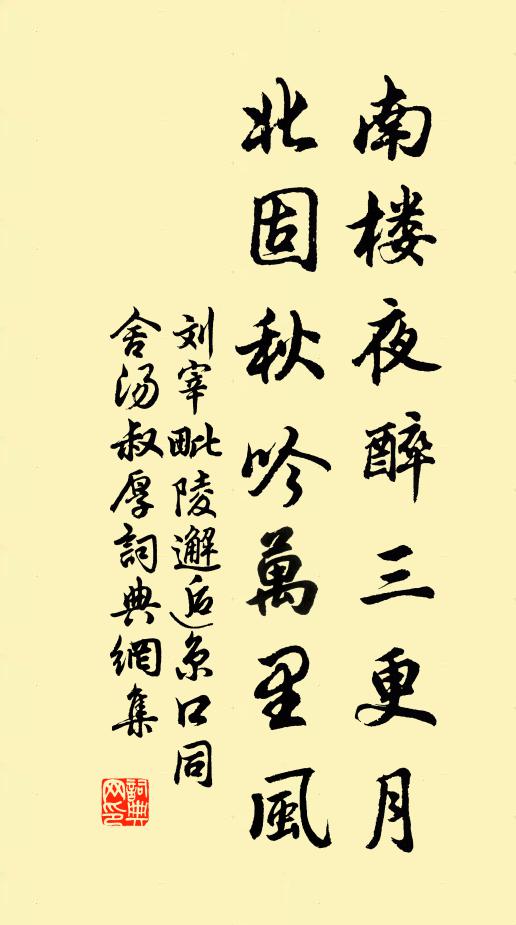 南楼夜醉三更月
北固秋吟萬里風
刘宰毗陵邂逅京口同
舍汤叔厚詞典網集
詞典网印